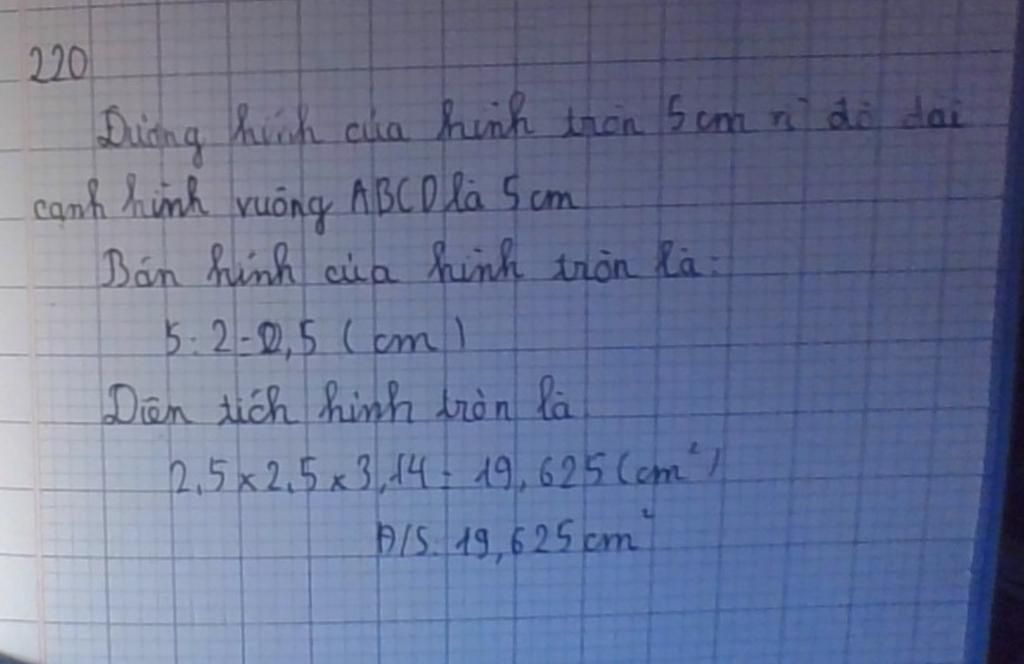 220
Đường kính của hình tròn 5 cm vì độ dài
cạnh hình vuông ABCD là 5 cm
Bán kính của hình tròn là:
5 : 2 = 2,5 ( cm )
Diện tích hình tròn là
2,5 × 2,5 × 3,14 = 19,625 (cm²)
Đ/S: 19,625 cm²